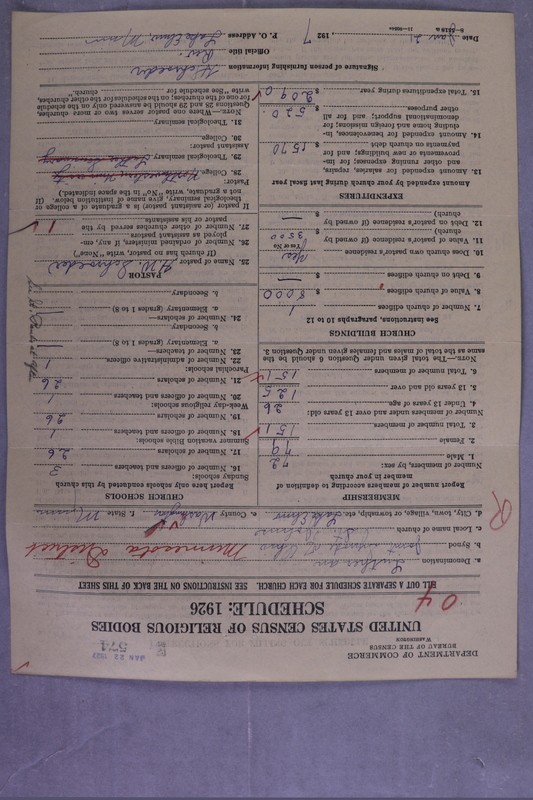 DEPARTMENT OF COMMERCE
BUREAU OF THE CENSUS
WASHINGTON
JAN 22 1927
574
UNITED STATES CENSUS OF RELIGIOUS BODIES
SCHEDULE: 1926
04
FILL OUT A SEPARATE SCHEDULE FOR EACH CHURCH. SEE INSTRUCTIONS ON THE BACK OF THIS SHEET
a. Denomination Lutheran
b. Synod Joint Synod of Ohio Minnesota District
c. Local name of church
d. City, town, village, or township, etc. Lake Elmo e. County Washington f. State Minn
R
MEMBERSHIP
Report number of members according to definition of member in your church
Number of members, by sex:
1. Male 72
2. Female 79
3. Total number of members 151
Number of members under and over 13 years old:
4. Under 13 years of age 26
5. 13 years old and over 125
6. Total number of members 151
NOTE.—The total given under Question 6 should be the same as the total of males and females given under Question 3.
CHURCH BUILDINGS
See instructions, paragraphs 10 to 12
7. Number of church edifices 1
8. Value of church edifices $ 8000
9. Debt on church edifices $ —
10. Does church own pastor's residence Yes
(Yes or No)
11. Value of pastor's residence (if owned by church) $ 3500
12. Debt on pastor's residence (if owned by church) $ —
EXPENDITURES
Amount expended by your church during last fiscal year
13. Amount expended for salaries, repairs, and other running expenses; for improvements or new buildings; and for payments on church debt $ 1570
14. Amount expended for benevolences, including home and foreign missions; for denominational support; and for all other purposes $ 520
15. Total expenditures during year $ 2090
CHURCH SCHOOLS
Report here only schools conducted by this church
Sunday schools:
16. Number of officers and teachers 3
17. Number of scholars 26
Summer vacation Bible schools:
18. Number of officers and teachers 1
19. Number of scholars 26
Week-day religious schools:
20. Number of officers and teachers 1
21. Number of scholars 26
Parochial schools:
22. Number of administrative officers 1
23. Number of teachers—
a. Elementary (grades 1 to 8)
b. Secondary
24. Number of scholars—
a. Elementary (grades 1 to 8)
b. Secondary
PASTOR
25. Name of pastor H.W. Schroeder
(If church has no pastor, write "None")
26. Number of ordained ministers, if any, employed as assistant pastors
27. Number of other churches served by the pastor or his assistants 1
If pastor (or assistant pastor) is a graduate of a college or theological seminary, give name of institution below. (If not a graduate, write "No" in the space indicated.)
Pastor:
28. College
29. Theological seminary Luther Seminary
Assistant pastor:
30. College
31. Theological seminary
NOTE.—Were one pastor serves two or more churches, Questions 28 and 29 should be answered only on the schedule for one of the churches; on the schedules for the other churches, write "See schedule for church."
Signature of person furnishing information H Schroeder
Official title Rev.
P. O. Address Lake Elmo, Minn
Date Jan 21, 1927